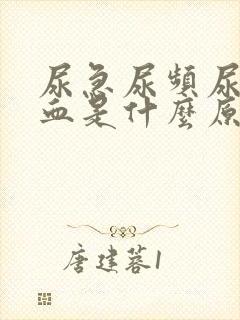 尿急尿頻尿
血是什麼原
唐建蓉1